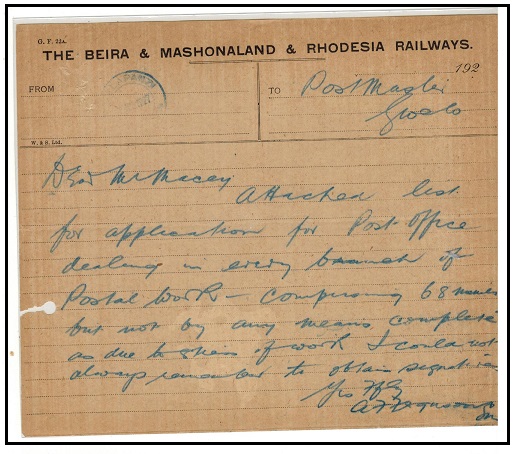 G. F. 22A.
THE BEIRA & MASHONALAND & RHODESIA RAILWAYS.
192
FROM
TO Postmaster
Gwelo
W. & S. Ltd.
Dear Mr Macey
Attached list
for application for Post Office
dealing in every branch of
Postal Work – comprising 68 names
but not by any means complete
as due to stress of work I could not
always remember to obtain signatures
Yrs ffly
A Ferguson